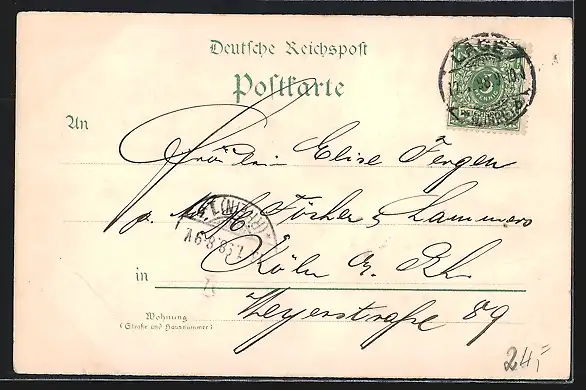 Deutsche Reichspost
Postkarte
LAGE
An Fräulein Elise Fergen
p. Adr. H. Förster & Lammers
in Köln a. Rh.
Weyerstraße 89
Wohnung
(Straße und Hausnummer)
24,=